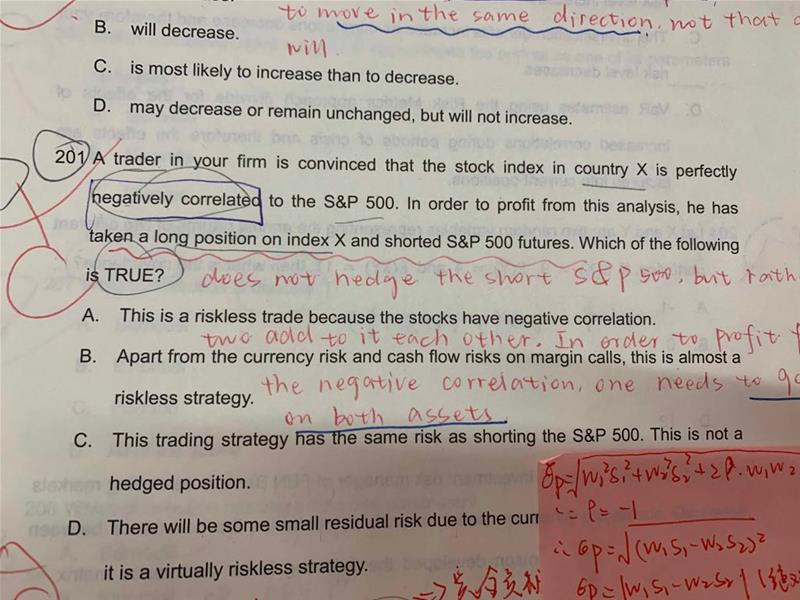 to move in the same direction, not that
B. will decrease.
will
C. is most likely to increase than to decrease.
D. may decrease or remain unchanged, but will not increase.
201 A trader in your firm is convinced that the stock index in country X is perfectly
negatively correlated to the S&P 500. In order to profit from this analysis, he has
taken a long position on index X and shorted S&P 500 futures. Which of the following
is TRUE? does not hedge the short S&P 500, but rath
A. This is a riskless trade because the stocks have negative correlation.
two add to it each other. In order to profit f
B. Apart from the currency risk and cash flow risks on margin calls, this is almost a
riskless strategy. the negative correlation, one needs to go
on both assets
C. This trading strategy has the same risk as shorting the S&P 500. This is not a
hedged position.
D. There will be some small residual risk due to the curr
it is a virtually riskless strategy.
σp=√W₁²S₁²+W₂²S₂²+2ρ·W₁W₂
∵ ρ = -1
∴ σp=√(W₁S₁-W₂S₂)²
σp=|W₁S₁-W₂S₂|